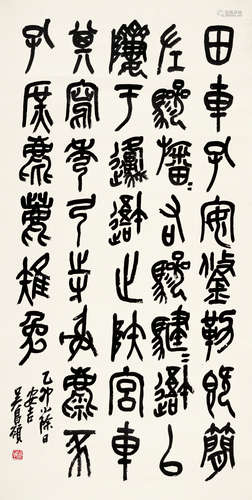 田車孔安鋚勒既簡
左驂旛=右驂騝=以
隮于邍止陝宮車
其寫秀弓寺射麋豕
孔庶麀鹿雉兔
乙卯小除日
安吉
吳昌碩